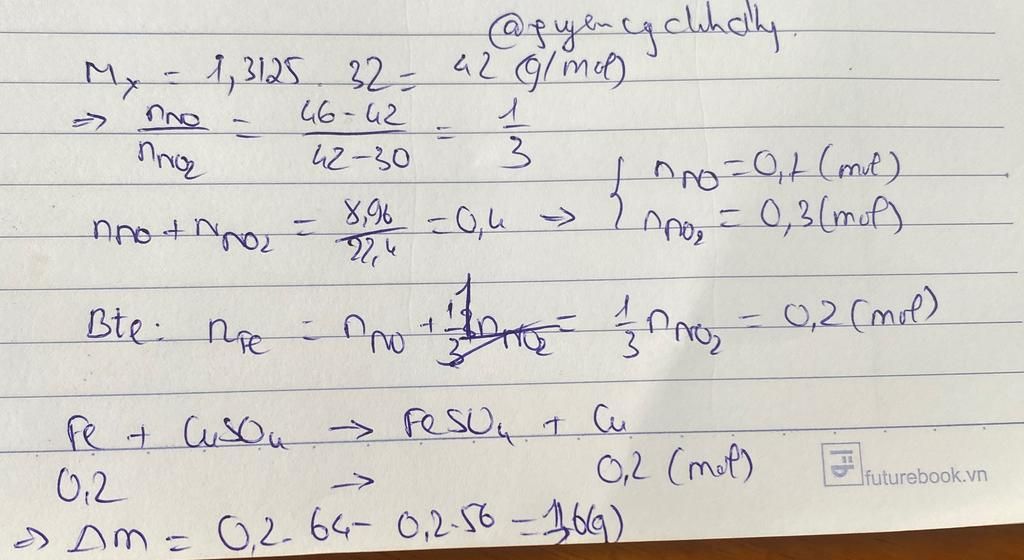 M_X = 1,3125 . 32 = 42 (g/mol)
=> n_NO / n_NO2 = (46 - 42) / (42 - 30) = 1/3
n_NO + n_NO2 = 8,96 / 22,4 = 0,4 => { n_NO = 0,1 (mol)
n_NO2 = 0,3 (mol)
Bte: n_Fe = n_NO + 1/3 n_NO2 = 1/3 n_NO2 = 0,2 (mol)
Fe + CuSO4 → FeSO4 + Cu
0,2 → 0,2 (mol)
futurebook.vn
=> Δm = 0,2 . 64 - 0,2 . 56 = 1,6 (g)